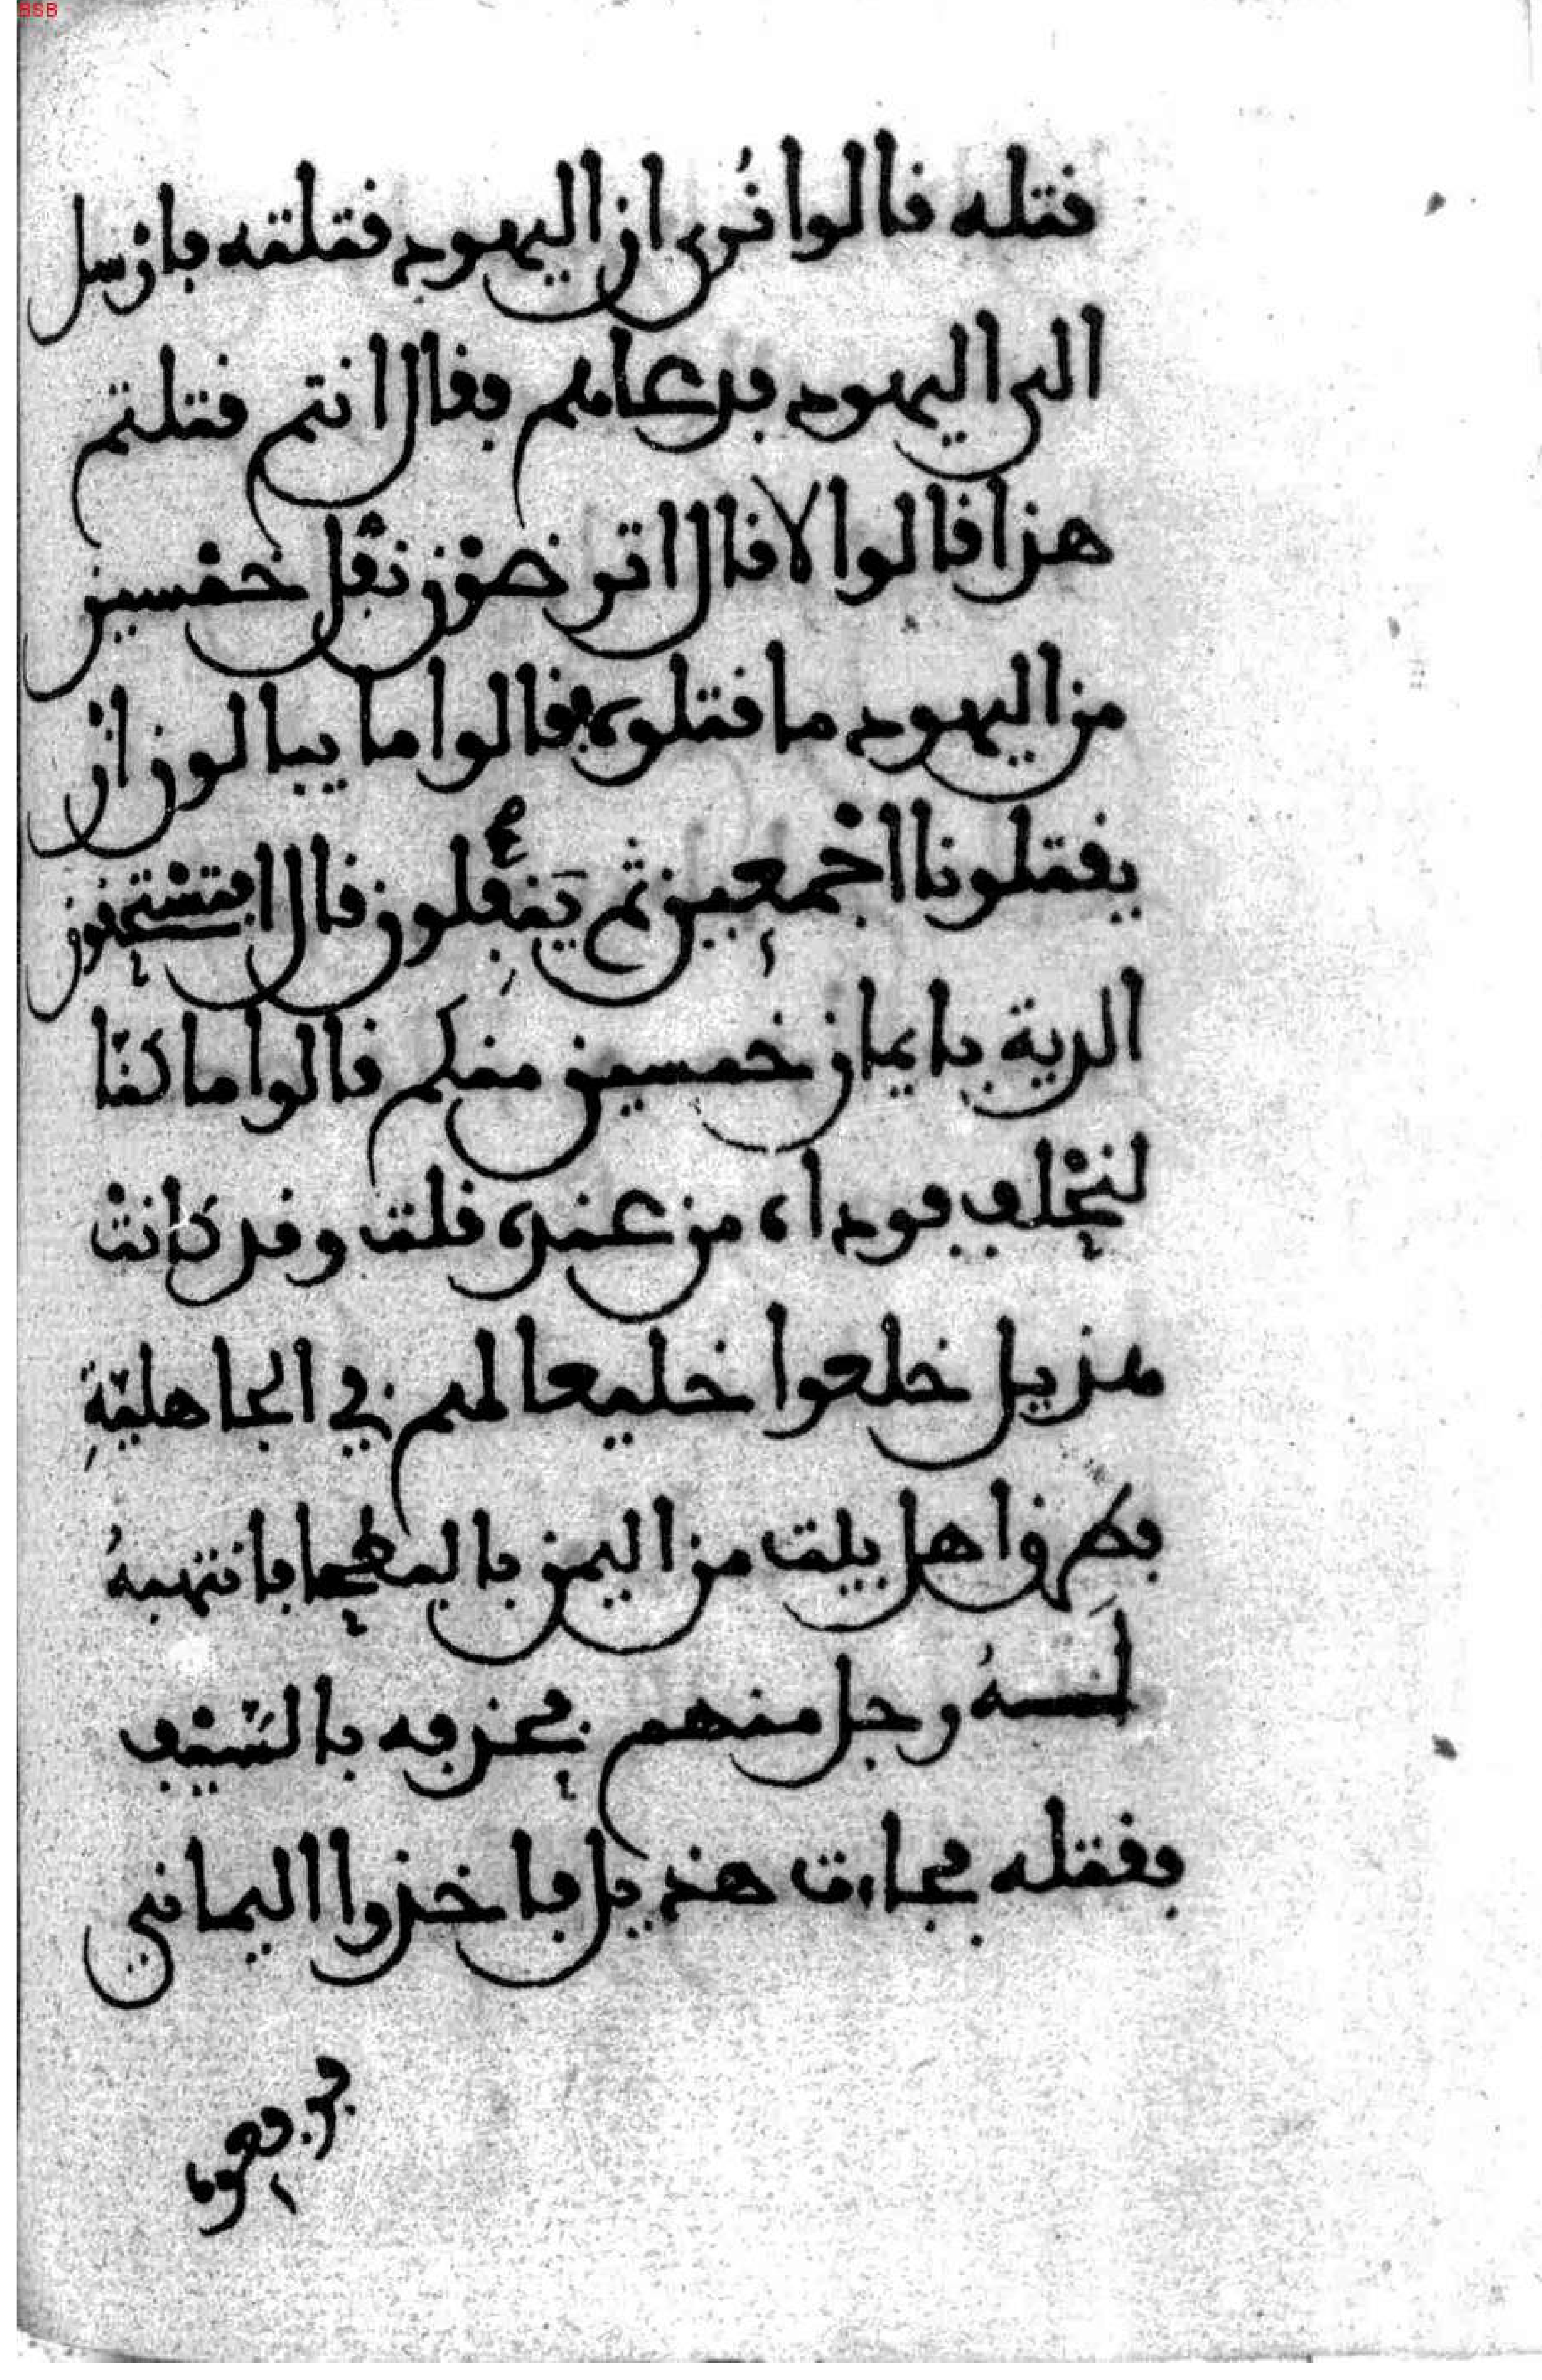 BSB
قتله قالوا نُرى ان اليهود قتلته فارْسل
الى اليهود فدعاهم فقال انتم قتلتم
هذا قالوا لا قال اترضوْن نفْل خمْسين
من اليهود ما قتلوه فقالوا ما يبالون انْ
يقتلونا اجْمعين ثم يَنفِلون قال افتسْتحقون
الدية بايمان خمسين منكم قالوا ما كنّا
لنحْلف فوداه من عنده قلت وقد كانتْ
هذيل خلعوا خليعا لهم في الجاهليّةِ
فطرق اهل بيت من اليمن بالبطحا فانتبهَ
لَه رجل منهم فحذفه بالسَّيْف
فقتله فجاءت هذيل فاخذوا اليماني